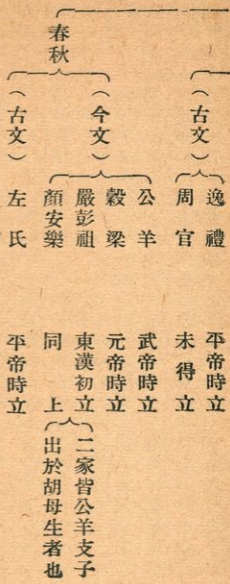 （古文）
逸禮 平帝時立
周官 未得立
春秋
（今文）
公羊 武帝時立
穀梁 元帝時立
嚴彭祖 東漢初立
顏安樂 同上
二家皆公羊支子
出於胡母生者也
（古文）
左氏 平帝時立